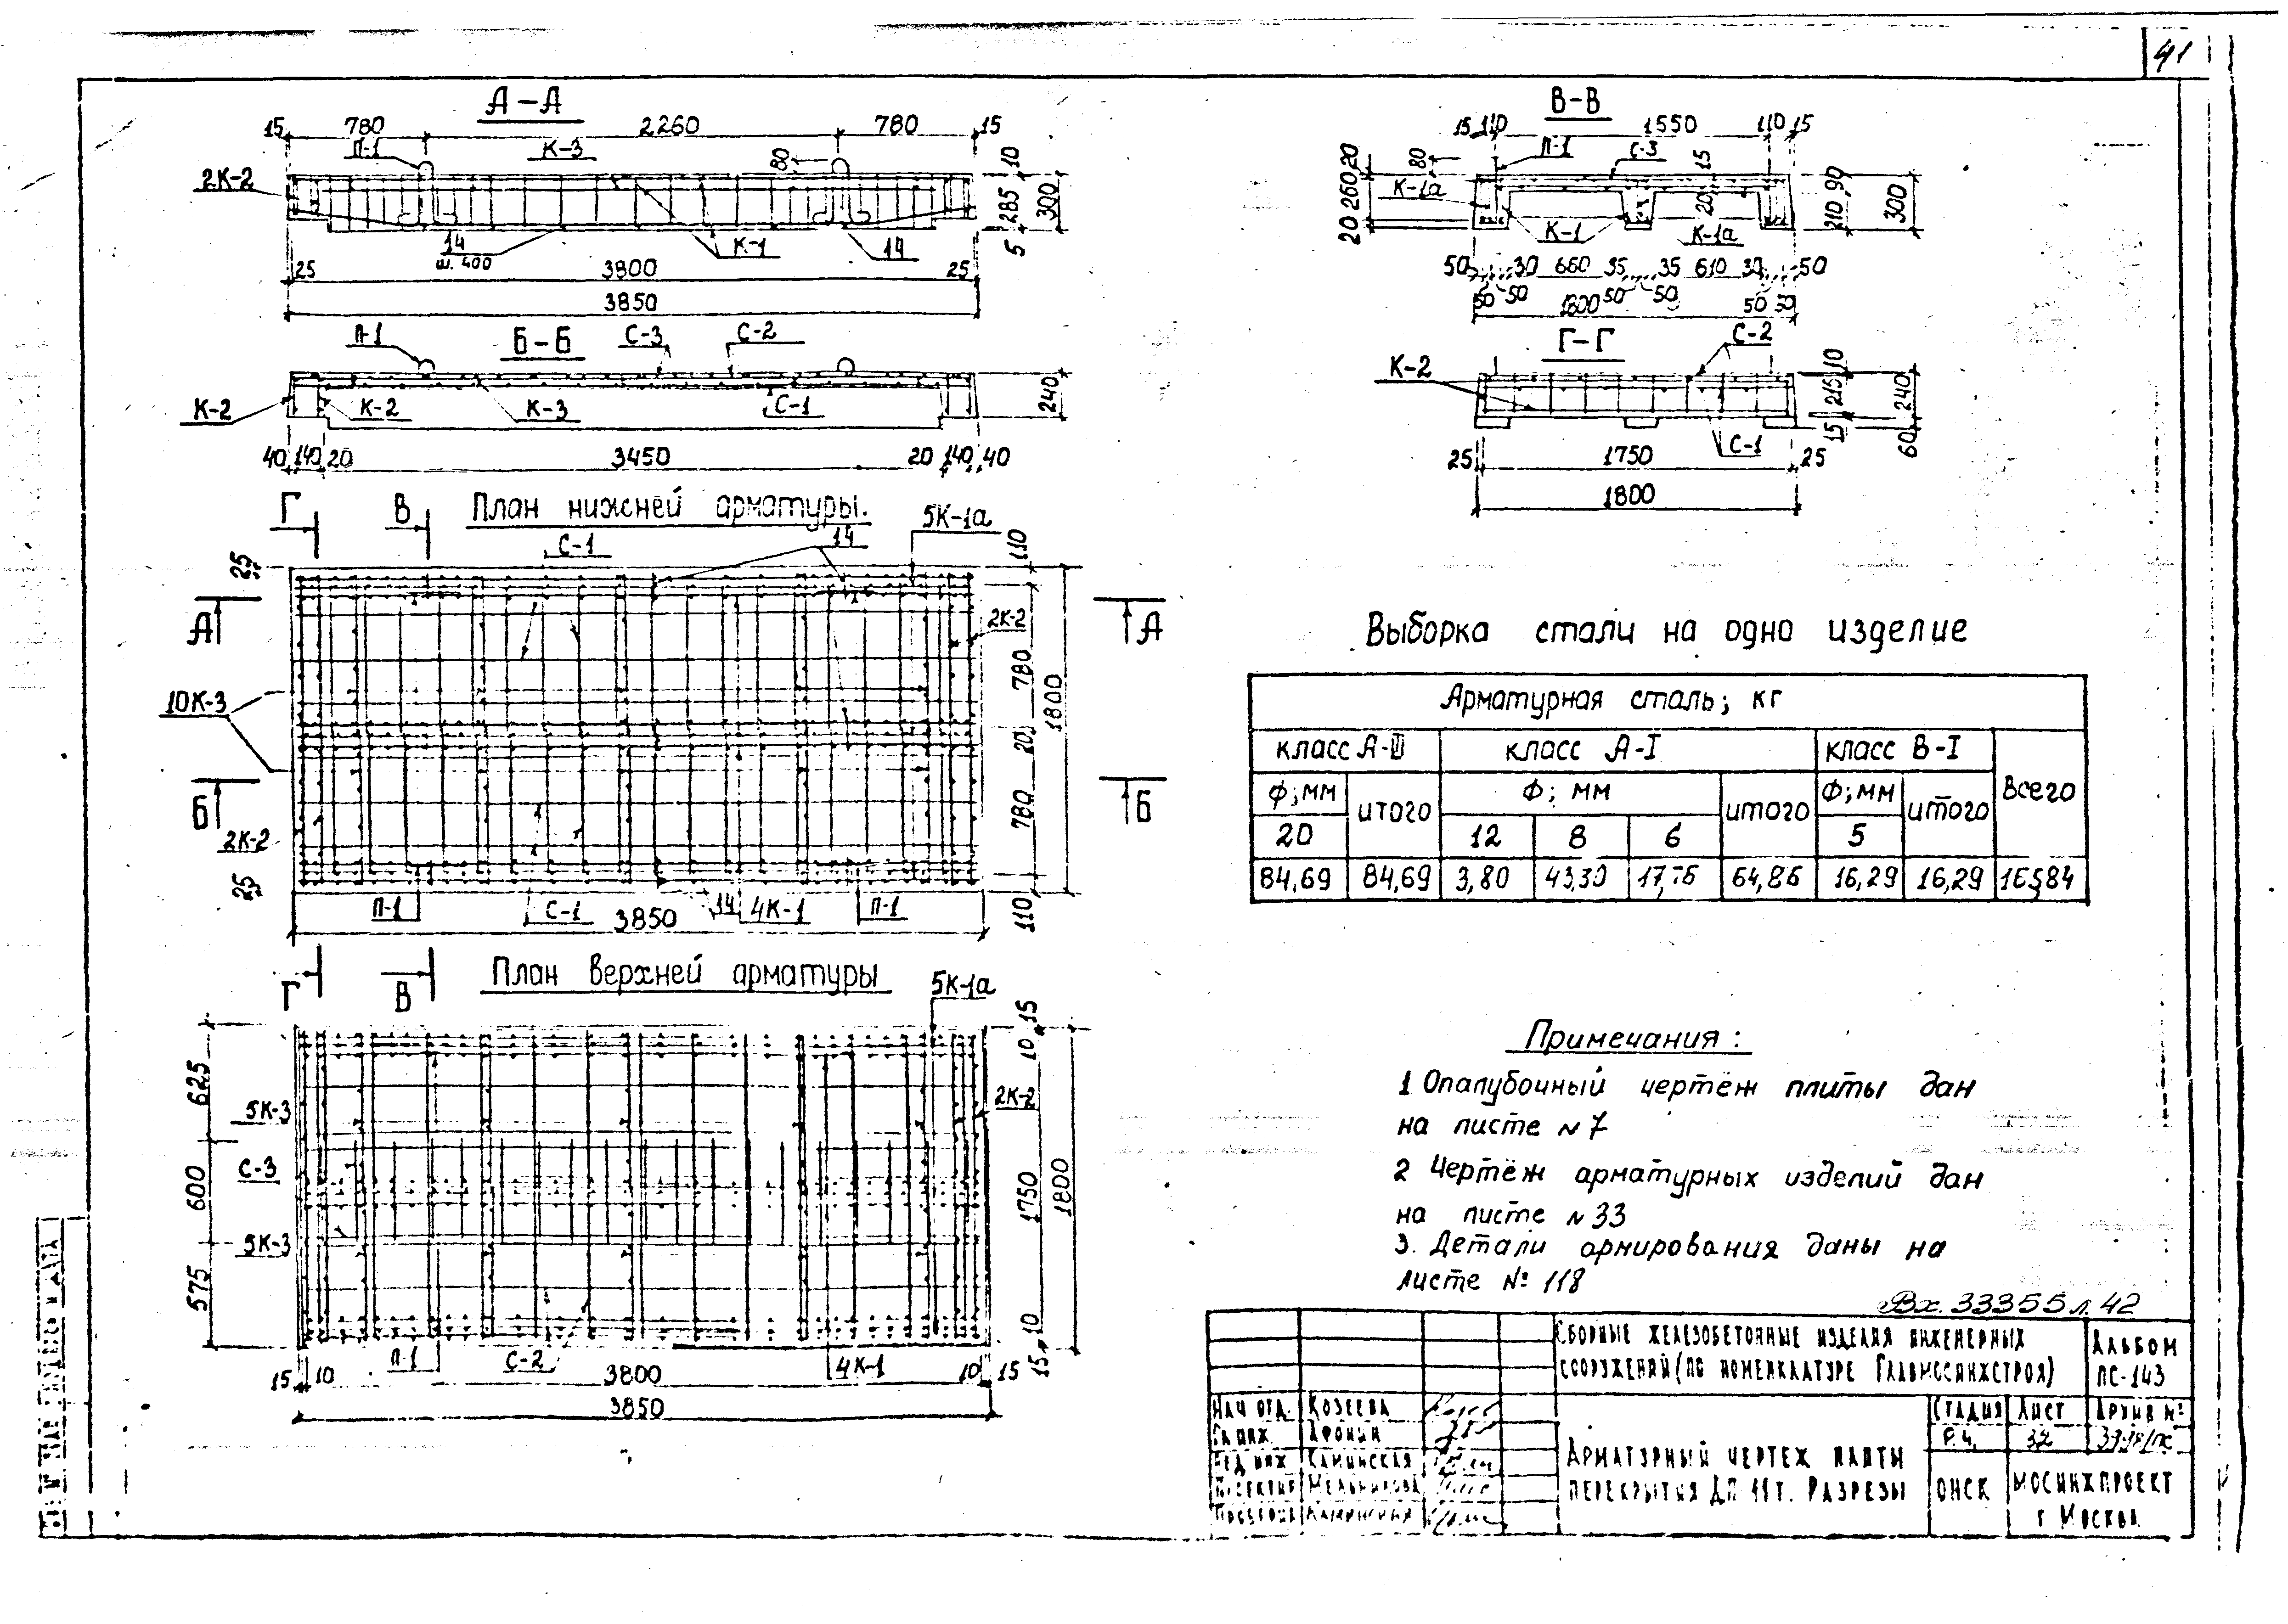 41
А-А
15 780 2260 780 15
П-1 К-3 80 10
2К-2 285 300
14 К-1 14 5
ш. 400
25 3800 25
3850
П-1 Б-Б С-3 С-2
К-2 К-2 К-3 С-1 240
40 140 20 3450 20 140 40
В-В
15 110 1550 110 15
20 80 П-1 С-3 15
260 К-1а 90
20 К-1 К-1а 20 210 300
50 30 660 35 35 610 30 50
50 50 1800 50 50 50 50
Г-Г С-2
К-2 10
215 240
15 60
С-1
25 1750 25
1800
Г В План нижней арматуры.
5К-1а
С-1 14 110
25
А А
2К-2
780
10К-3 1800
20
Б Б
780
2К-2
25
П-1 С-1 14 4К-1 П-1
3850 110
Г В План верхней арматуры
5К-1а
15
10
625
5К-3 2К-2
С-3
600 1750 1800
5К-3
575
10
П-1 С-2 4К-1
15 10 3800 10 15 15
3850
Выборка стали на одно изделие
Арматурная сталь; кг
класс А-III класс А-I класс В-I Всего
Ф; мм итого Ф; мм итого Ф; мм итого
20 12 8 6 5
84,69 84,69 3,80 43,30 64,86 16,29 16,29
Примечания:
1 Опалубочный чертёж плиты дан
на листе №7
2 Чертёж арматурных изделий дан
на листе №33
3. Детали армирования даны на
листе № 118
Вх. 33355 л. 42
Сборные железобетонные изделия инженерных
сооружений (по номенклатуре Главмосинжстроя)
Альбом
ПС-143
Нач отд. Козеева
Гл инж. Афонин
Вед инж Каминская
Мельникова
Каминская
Арматурный чертеж плиты
перекрытия ДП 11т. Разрезы
Стадия Лист Архив №
Р.Ч. 32
ОНСК
Мосинжпроект
г Москва